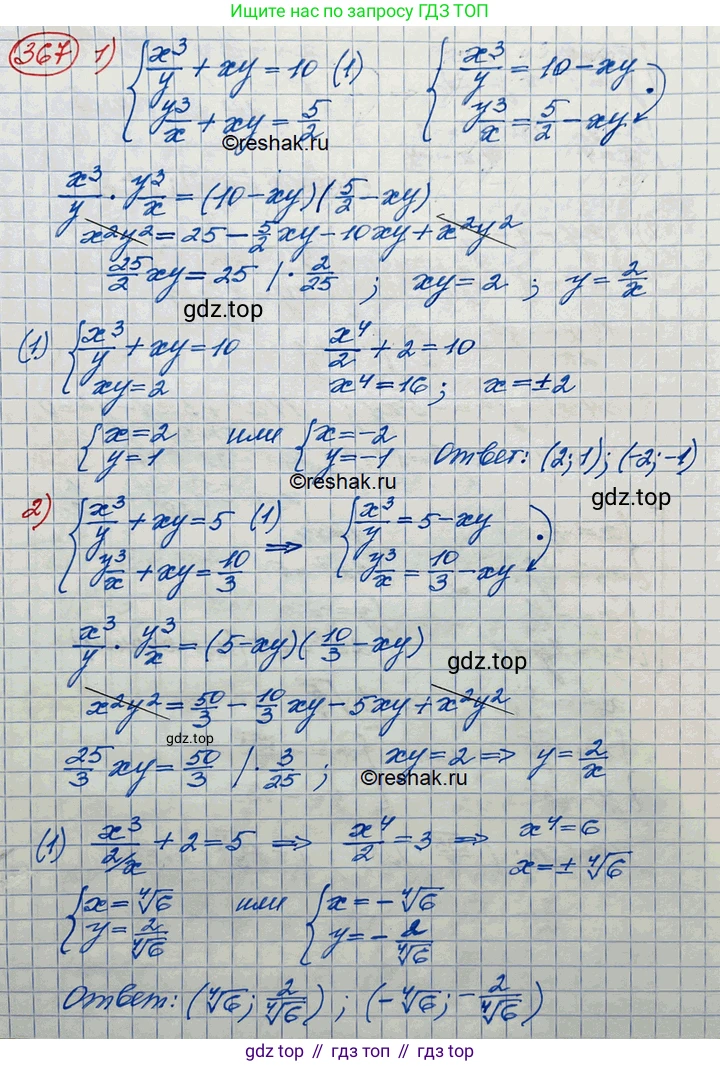 Ищите нас по запросу ГДЗ ТОП
367 1) { x³/y + xy = 10 (1) { x³/y = 10 - xy
{ y³/x + xy = 5/2 { y³/x = 5/2 - xy ·
©reshak.ru
x³/y · y³/x = (10 - xy)(5/2 - xy)
x²y² = 25 - 5/2 xy - 10xy + x²y²
25/2 xy = 25 | · 2/25 ; xy = 2 ; y = 2/x
gdz.top
(1) { x³/y + xy = 10 x⁴/2 + 2 = 10
{ xy = 2 x⁴ = 16 ; x = ±2
{ x = 2 или { x = -2
{ y = 1 { y = -1 Ответ: (2; 1); (-2; -1)
©reshak.ru
gdz.top
2) { x³/y + xy = 5 (1) ⇒ { x³/y = 5 - xy
{ y³/x + xy = 10/3 { y³/x = 10/3 - xy ·
x³/y · y³/x = (5 - xy)(10/3 - xy)
gdz.top
x²y² = 50/3 - 10/3 xy - 5xy + x²y²
gdz.top
25/3 xy = 50/3 | · 3/25 ; xy = 2 ⇒ y = 2/x
©reshak.ru
(1) x³/(2/x) + 2 = 5 ⇒ x⁴/2 = 3 ⇒ x⁴ = 6
x = ± ⁴√6
{ x = ⁴√6 или { x = - ⁴√6
{ y = 2/⁴√6 { y = - 2/⁴√6
Ответ: (⁴√6; 2/⁴√6) ; (-⁴√6; - 2/⁴√6)
gdz.top // гдз топ // gdz.top